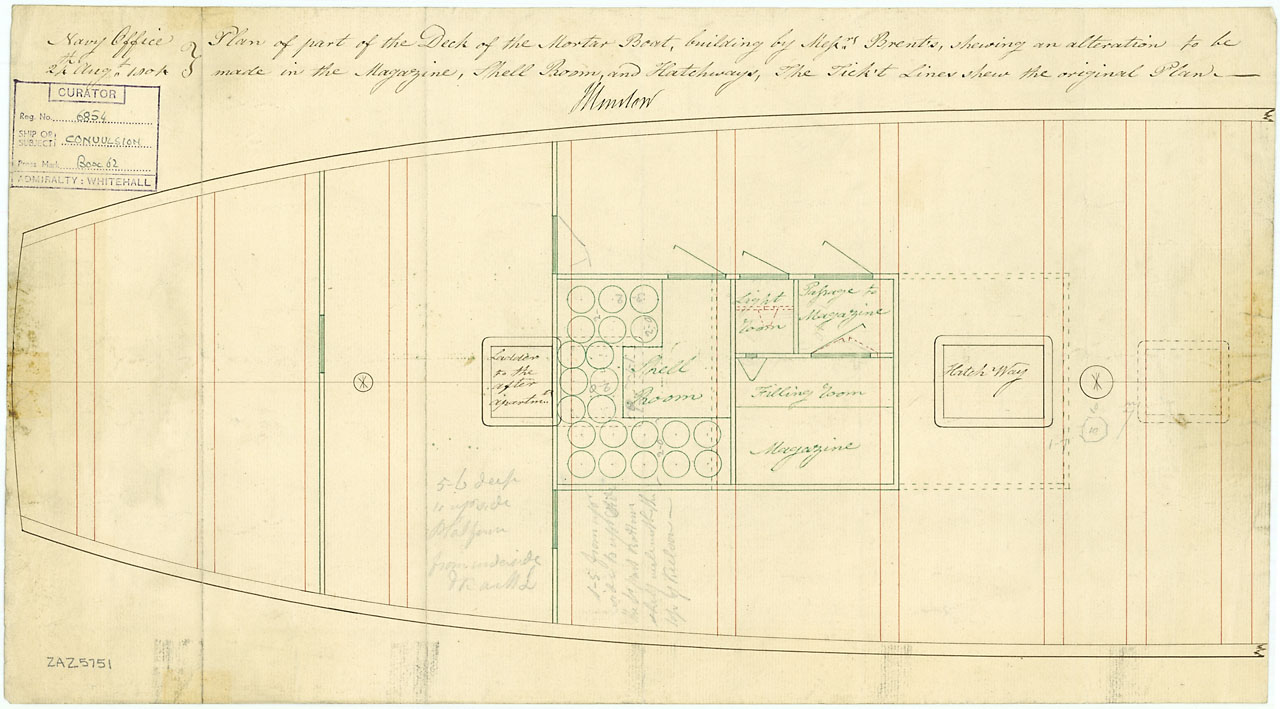 Navy Office
24th Augt. 1804
Plan of part of the Deck of the Mortar Boat, building by Messrs. Brents, shewing an alteration to be
made in the Magazine, Shell Room, and Hatchways, The Tick't Lines shew the original Plan.
CURATOR
Reg. No. 6854
SHIP OR SUBJECT: CONVULSION
Press Mark Box 62
ADMIRALTY: WHITEHALL
Light
Room
Passage to
Magazine
Ladder
to the
after
apartment
Shell
Room
Filling Room
Hatch Way
Magazine
5-6 deep
to upside
Platform
from underside
ZAZ5751